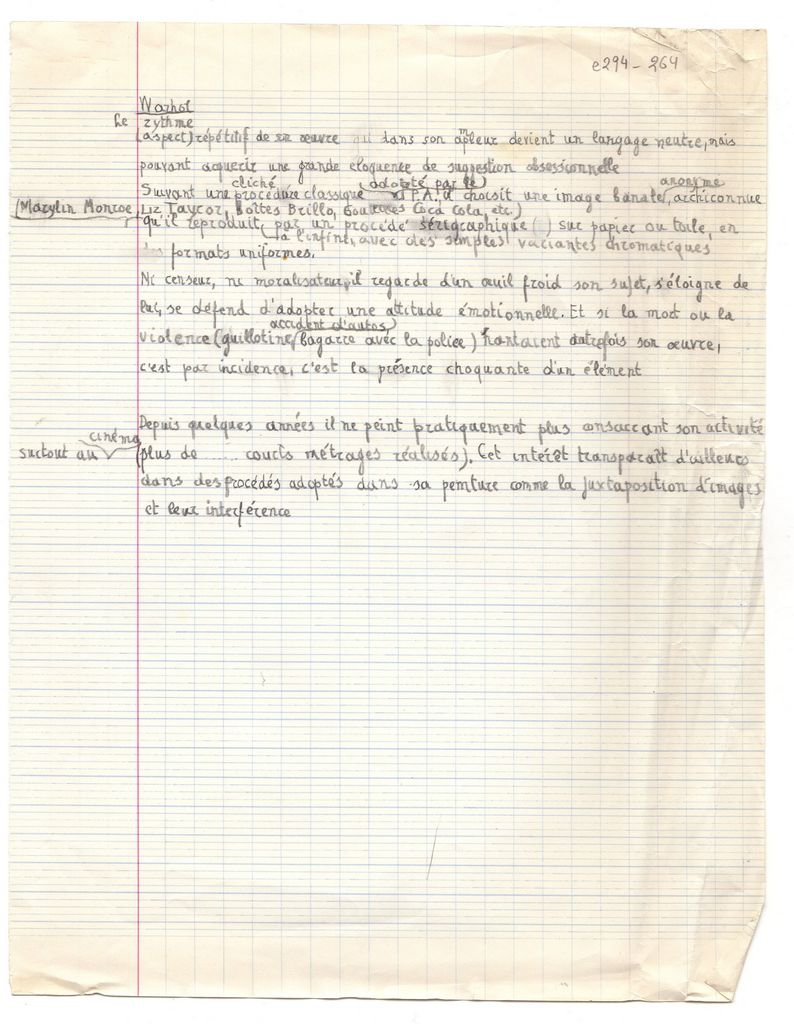 e294 - 264
Warhol
Le rythme
(aspect) répétitif de son œuvre qui dans son ampleur devient un langage neutre, mais
pouvant acquerir une grande éloquence de suggestion obsessionnelle
cliché (adopté par le) anonyme
Suivant une procédure classique P.A. il choisit une image banale, archiconnue
(Marylin Monroe, Liz Taylor, Boîtes Brillo, Bouteilles Coca Cola, etc.)
qu'il reproduit, par un procédé sérigraphique ( ) sur papier ou toile, en
à l'infini, avec des simples variantes chromatiques
formats uniformes.
Ni censeur, ni moralisateur, il regarde d'un œuil froid son sujet, s'éloigne de
lui, se défend d'adopter une attitude émotionnelle. Et si la mort ou la
accident d'autos,
violence (guillotine, bagarre avec la police) hantaient autrefois son œuvre,
c'est par incidence, c'est la présence choquante d'un élément
Depuis quelques années il ne peint pratiquement plus consacrant son activité
surtout au cinéma (plus de ...... courts métrages réalisés). Cet intérêt transparaît d'ailleurs
dans des procédés adoptés dans sa peinture comme la juxtaposition d'images
et leur interférence